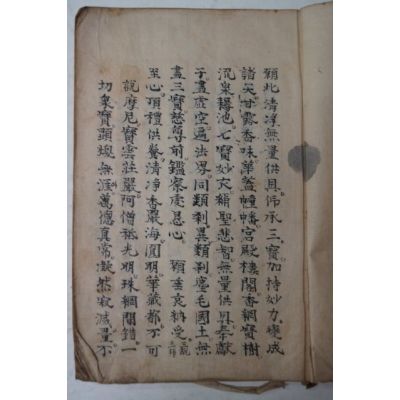 願此清淨無量供具仰承三寶加持妙力變成
諸天甘露香味華盖幢幡宮殿樓閣香網寶樹
流泉池七寶妙衣絹聖悲智無量供具奉獻
于盡虛空遍法界同類刹異類刹塵毛國土無
盡三寶慈尊前鑑察虔懇心 願垂哀納受
至心頂禮供養清淨香嚴海圓明華藏都不可
說摩尼寶雲莊嚴阿僧祗光明珠網間錯一
切衆寶顯煥無涯萬德真常凝然寂滅量不